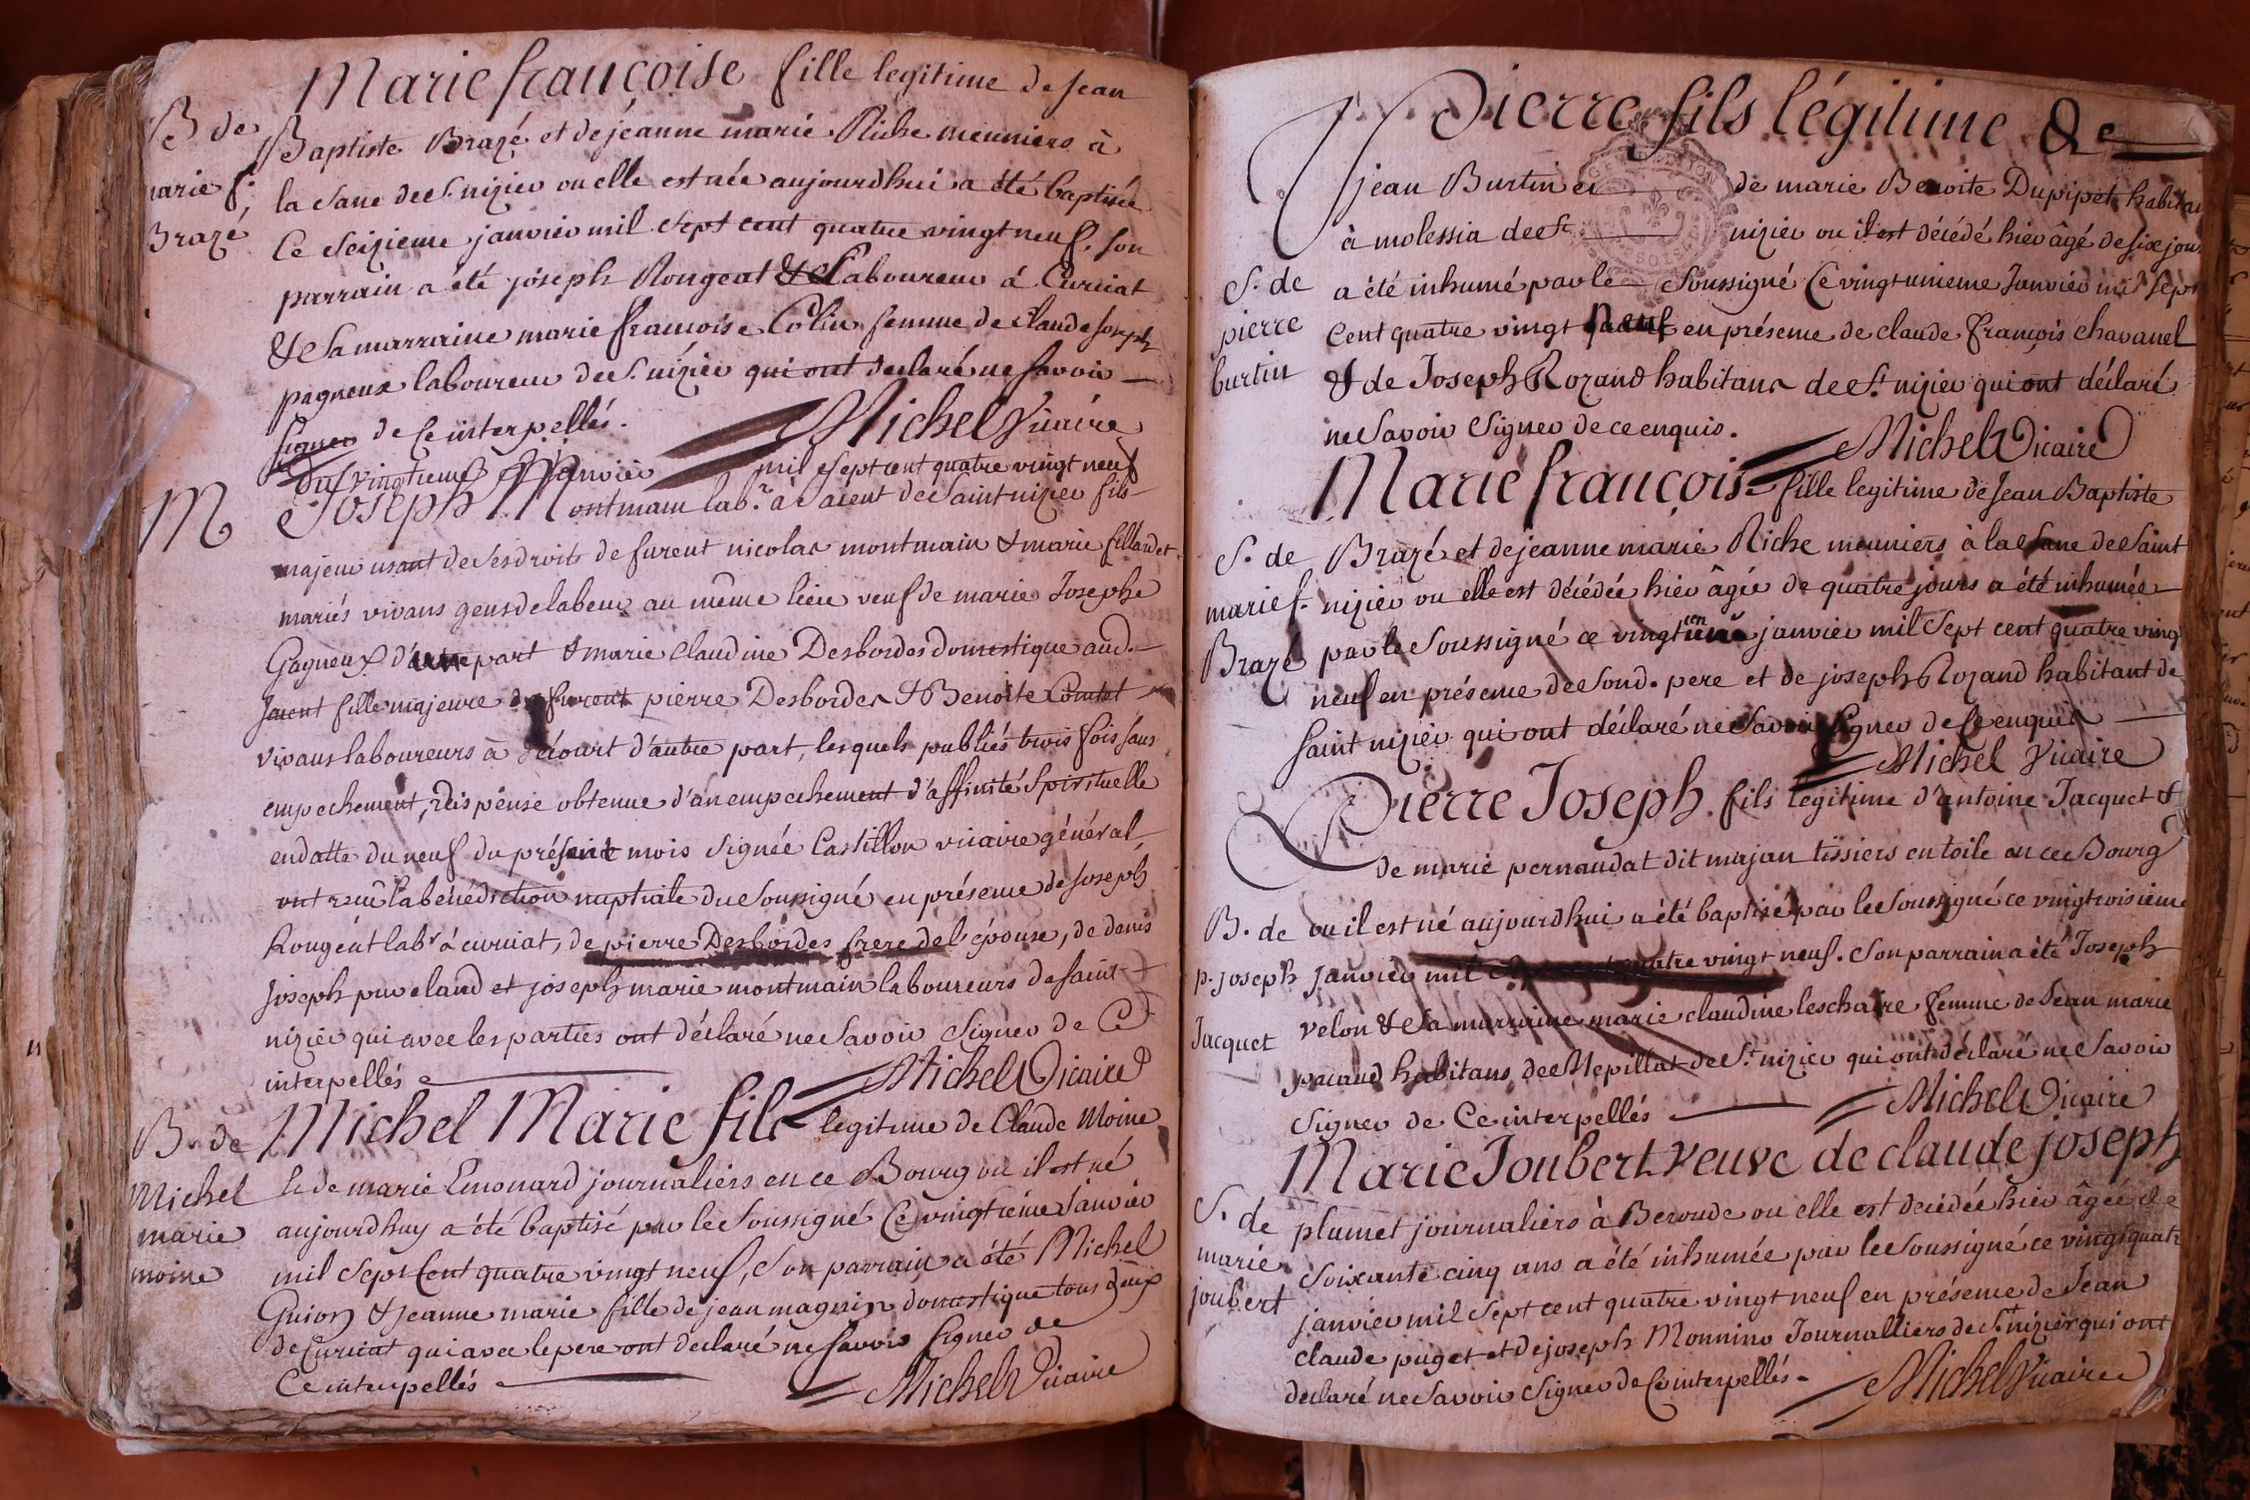 Marie françoise fille legitime de Jean
B de
marie f.
Brazé
Baptiste Brazé et de jeanne marie Riche meuniers à
la sane de St. nizier ou elle est née aujourdhui a été baptisée
ce seizieme janvier mil sept cent quatre vingt neuf. son
parrain a été joseph Rongeat Laboureur à Curciat
& sa marraine marie françoise Colin femme de claude joseph
pagneux laboureur de St. nizier qui ont declaré ne savoir
signer de ce interpellés.
Michel Vicaire
du vingtieme Janvier mil sept cent quatre vingt neuf
M
Joseph Montmain lab.r à Jaient de Saint nizier fils
majeur usant de ses droits de furent nicolas montmain & marie fillardet
mariés vivans gens de labeur au même lieu veuf de marie Josephe
Gagneux d'une part & marie claudine Desbordes domestique aud.
Jaient fille majeure de furent pierre Desbordes & Benoite Comtet
vivans laboureurs à décourt d'autre part, lesquels publiés trois fois sans
empechement, dispense obtenue d'an empechement d'affinité spirituelle
en datte du neuf du présent mois signée Castillon vicaire général
ont reçu la bénédiction nuptiale du soussigné en présence de joseph
Rongeat labr à curciat, de pierre Desbordes frere de l'épouse, de denis
joseph puveland et joseph marie montmain laboureurs de saint
nizier qui avec les parties ont déclaré ne savoir signer de ce
interpellés
Michel Vicaire
B. de
Michel
marie
moine
Michel Marie fils legitime de Claude Moine
& de marie Emonard journaliers en ce Bourg ou il est né
aujourdhuy a été baptisé par le soussigné ce vingtieme Janvier
mil sept cent quatre vingt neuf, son parrain a été Michel
Guion & jeanne marie fille de jean magnin domestique tous deux
de Curciat qui avec le pere ont declaré ne savoir signer de
ce interpellés
Michel Vicaire
Pierre fils légitime de
S. de
pierre
burtin
jean Burtin et de marie Benoite Dupipet habitans
à molessia de St nizier ou il est décédé hier âgé de six jours
a été inhumé par le soussigné ce vingt unieme Janvier mil sept
cent quatre vingt neuf en présence de claude françois chavanel
& de Joseph Rozand habitans de St. nizier qui ont déclaré
ne savoir signer de ce enquis.
Michel Vicaire
S. de
marie f.
Brazé
Marie françoise fille legitime de Jean Baptiste
Brazé et de jeanne marie Riche meuniers à la sane de Saint
nizier ou elle est décédée hier âgée de quatre jours a été inhumée
par le soussigné ce vingt unieme janvier mil sept cent quatre vingt
neuf en présence de sond. pere et de joseph Rozand habitant de
saint nizier qui ont déclaré ne savoir signer de ce enquis
Michel Vicaire
B. de
p. joseph
Jacquet
Pierre Joseph fils legitime d'antoine Jacquet &
de marie pernaudat dit majan tissiers en toile en ce Bourg
ou il est né aujourdhui a été baptisé par le soussigné ce vingtroisieme
janvier mil quatre vingt neuf. son parrain a été Joseph
velon & sa marraine marie claudine leschaire femme de Jean marie
pacaud habitans de Mepillat de St nizier qui ont déclaré ne savoir
signer de ce interpellés
Michel Vicaire
S. de
marie
joubert
Marie Joubert veuve de claude joseph
plumet journaliers à Beroude ou elle est decédée hier âgée de
soixante cinq ans a été inhumée par le soussigné ce vingt quatre
janvier mil sept cent quatre vingt neuf en présence de Jean
claude puget et de joseph Monnino Journalliers de St nizier qui ont
déclaré ne savoir signer de ce interpellés.
Michel Vicaire